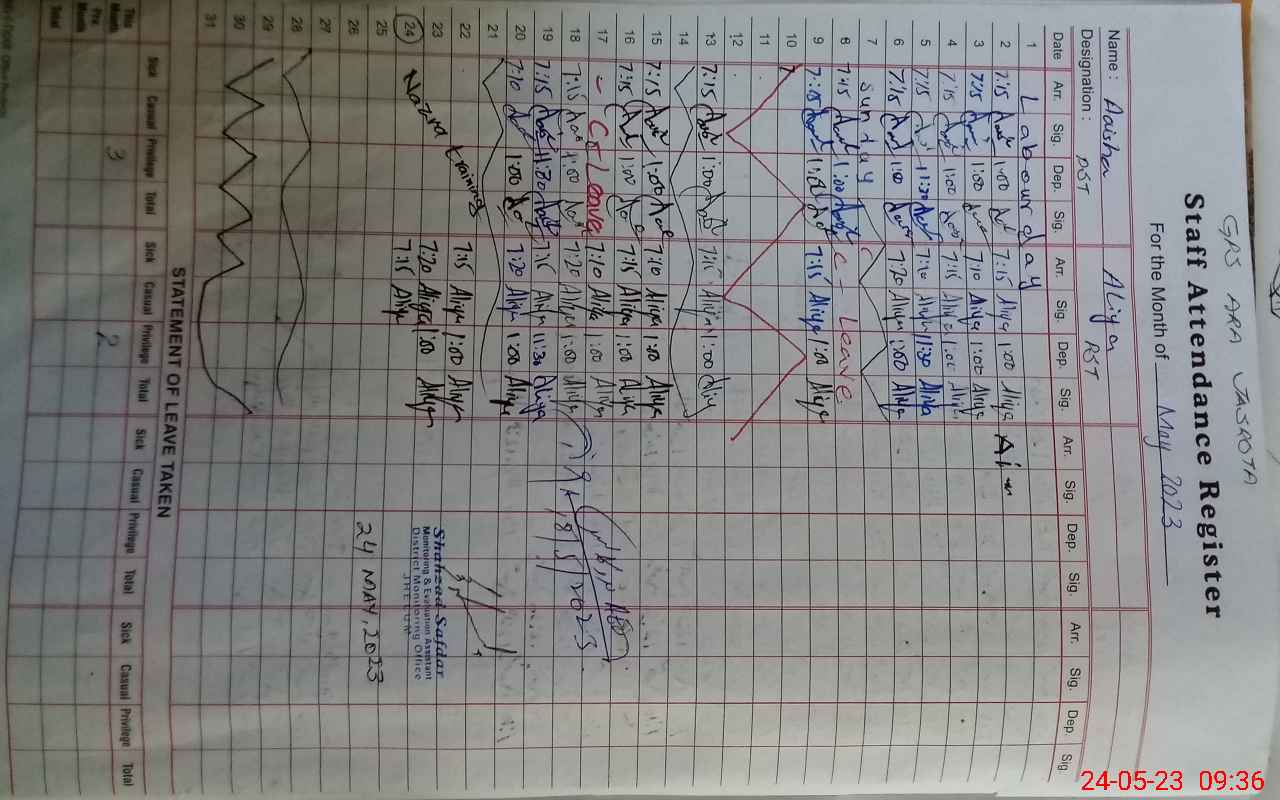 GRS ARA JASROTA
Staff Attendance Register
For the Month of May 2023
Name : Aaisha Aliya
Designation : PST PST
Date Arr. Sig. Dep. Sig. Arr. Sig. Dep. Sig. Arr. Sig. Dep. Sig. Arr. Sig. Dep. Sig.
1 Labour day
2 7:15 1:00 7:15 Aliya 1:00 Aliya
3 7:15 1:00 7:10 Aliya 1:00 Aliya
4 7:15 1:00 7:15 Aliya 1:00 Aliya
5 7:15 11:30 7:10 Aliya 11:30 Aliya
6 7:15 1:00 7:20 Aliya 1:00 Aliya
7 Sunday
8 7:15 1:00 C - Leave
9 7:15 1:00 7:15 Aliya 1:00 Aliya
10
11
12
13 7:15 1:00 7:15 Aliya 1:00 Aliya
14
15 7:15 1:00 7:10 Aliya 1:00 Aliya
16 7:15 1:00 7:15 Aliya 1:00 Aliya
17 - C - Leave 7:10 Aliya 1:00 Aliya
18 7:15 1:00 7:20 Aliya 1:00 Aliya
19 7:15 11:30 7:15 Aliya 11:30 Aliya
20 7:10 1:00 7:20 Aliya 1:00 Aliya
21
22 7:15 Aliya 1:00 Aliya
23 7:20 Aliya 1:00 Aliya
24 training 7:15 Aliya
25
26
27
28
29
30
31
Shahzad Safdar
Monitoring & Evaluation Assistant
District Monitoring Office
JHELUM
24 MAY, 2023
STATEMENT OF LEAVE TAKEN
Sick Casual Privilege Total Sick Casual Privilege Total Sick Casual Privilege Total Sick Casual Privilege Total
This Month 3 2
Pre. Month
Total
24-05-23 09:36